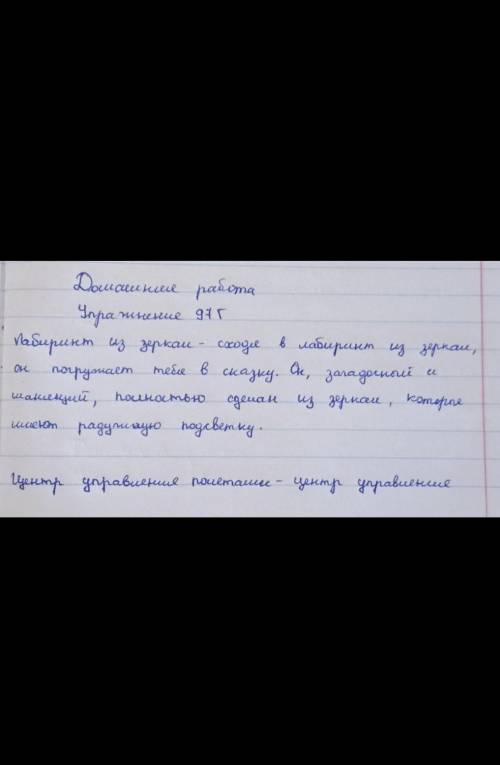 Домашние работа
Упражнение 97Г
Лабиринт из зеркал - сходя в лабиринт из зеркал,
он погружает тебя в сказку. Он, загадосный и
манящий, полностью сделан из зеркал, которые
имеют радужную подсветку.
Центр управления полетами - центр управление